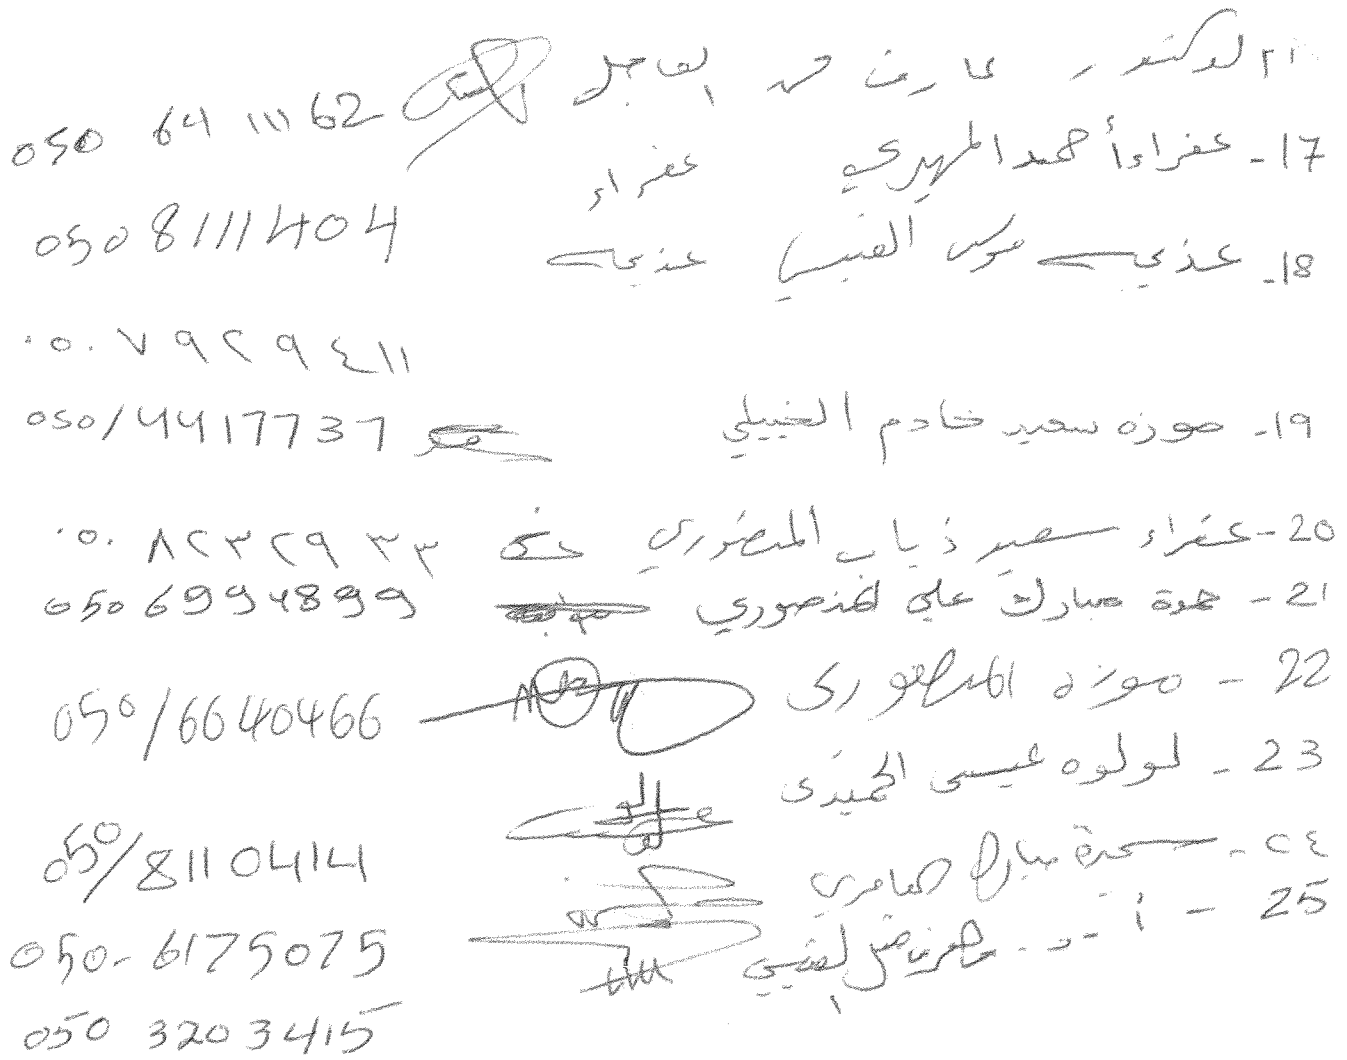 الدكتور عارف محمد 050 64 11162
17- عفراء أحمد المهيري عفراء 050 8111404
18- عذيجه عذيجه
٠٥٠ ٧٩٢٩٤١١
19- موزه سعيد خادم الخييلي 050/4417737
20- عفراء سعيد ذياب المنصوري ٠٥٠ ٨٢٣٢٩٣٣
21- حمدة مبارك علي المنصوري 050 6994899
22- موزه المنصورى 050/6640466
23- لولوه عيسى الحميدى 050/8110414
٢٤- مبارك العامري 050-6175075
25- أ.د. 050 3203415